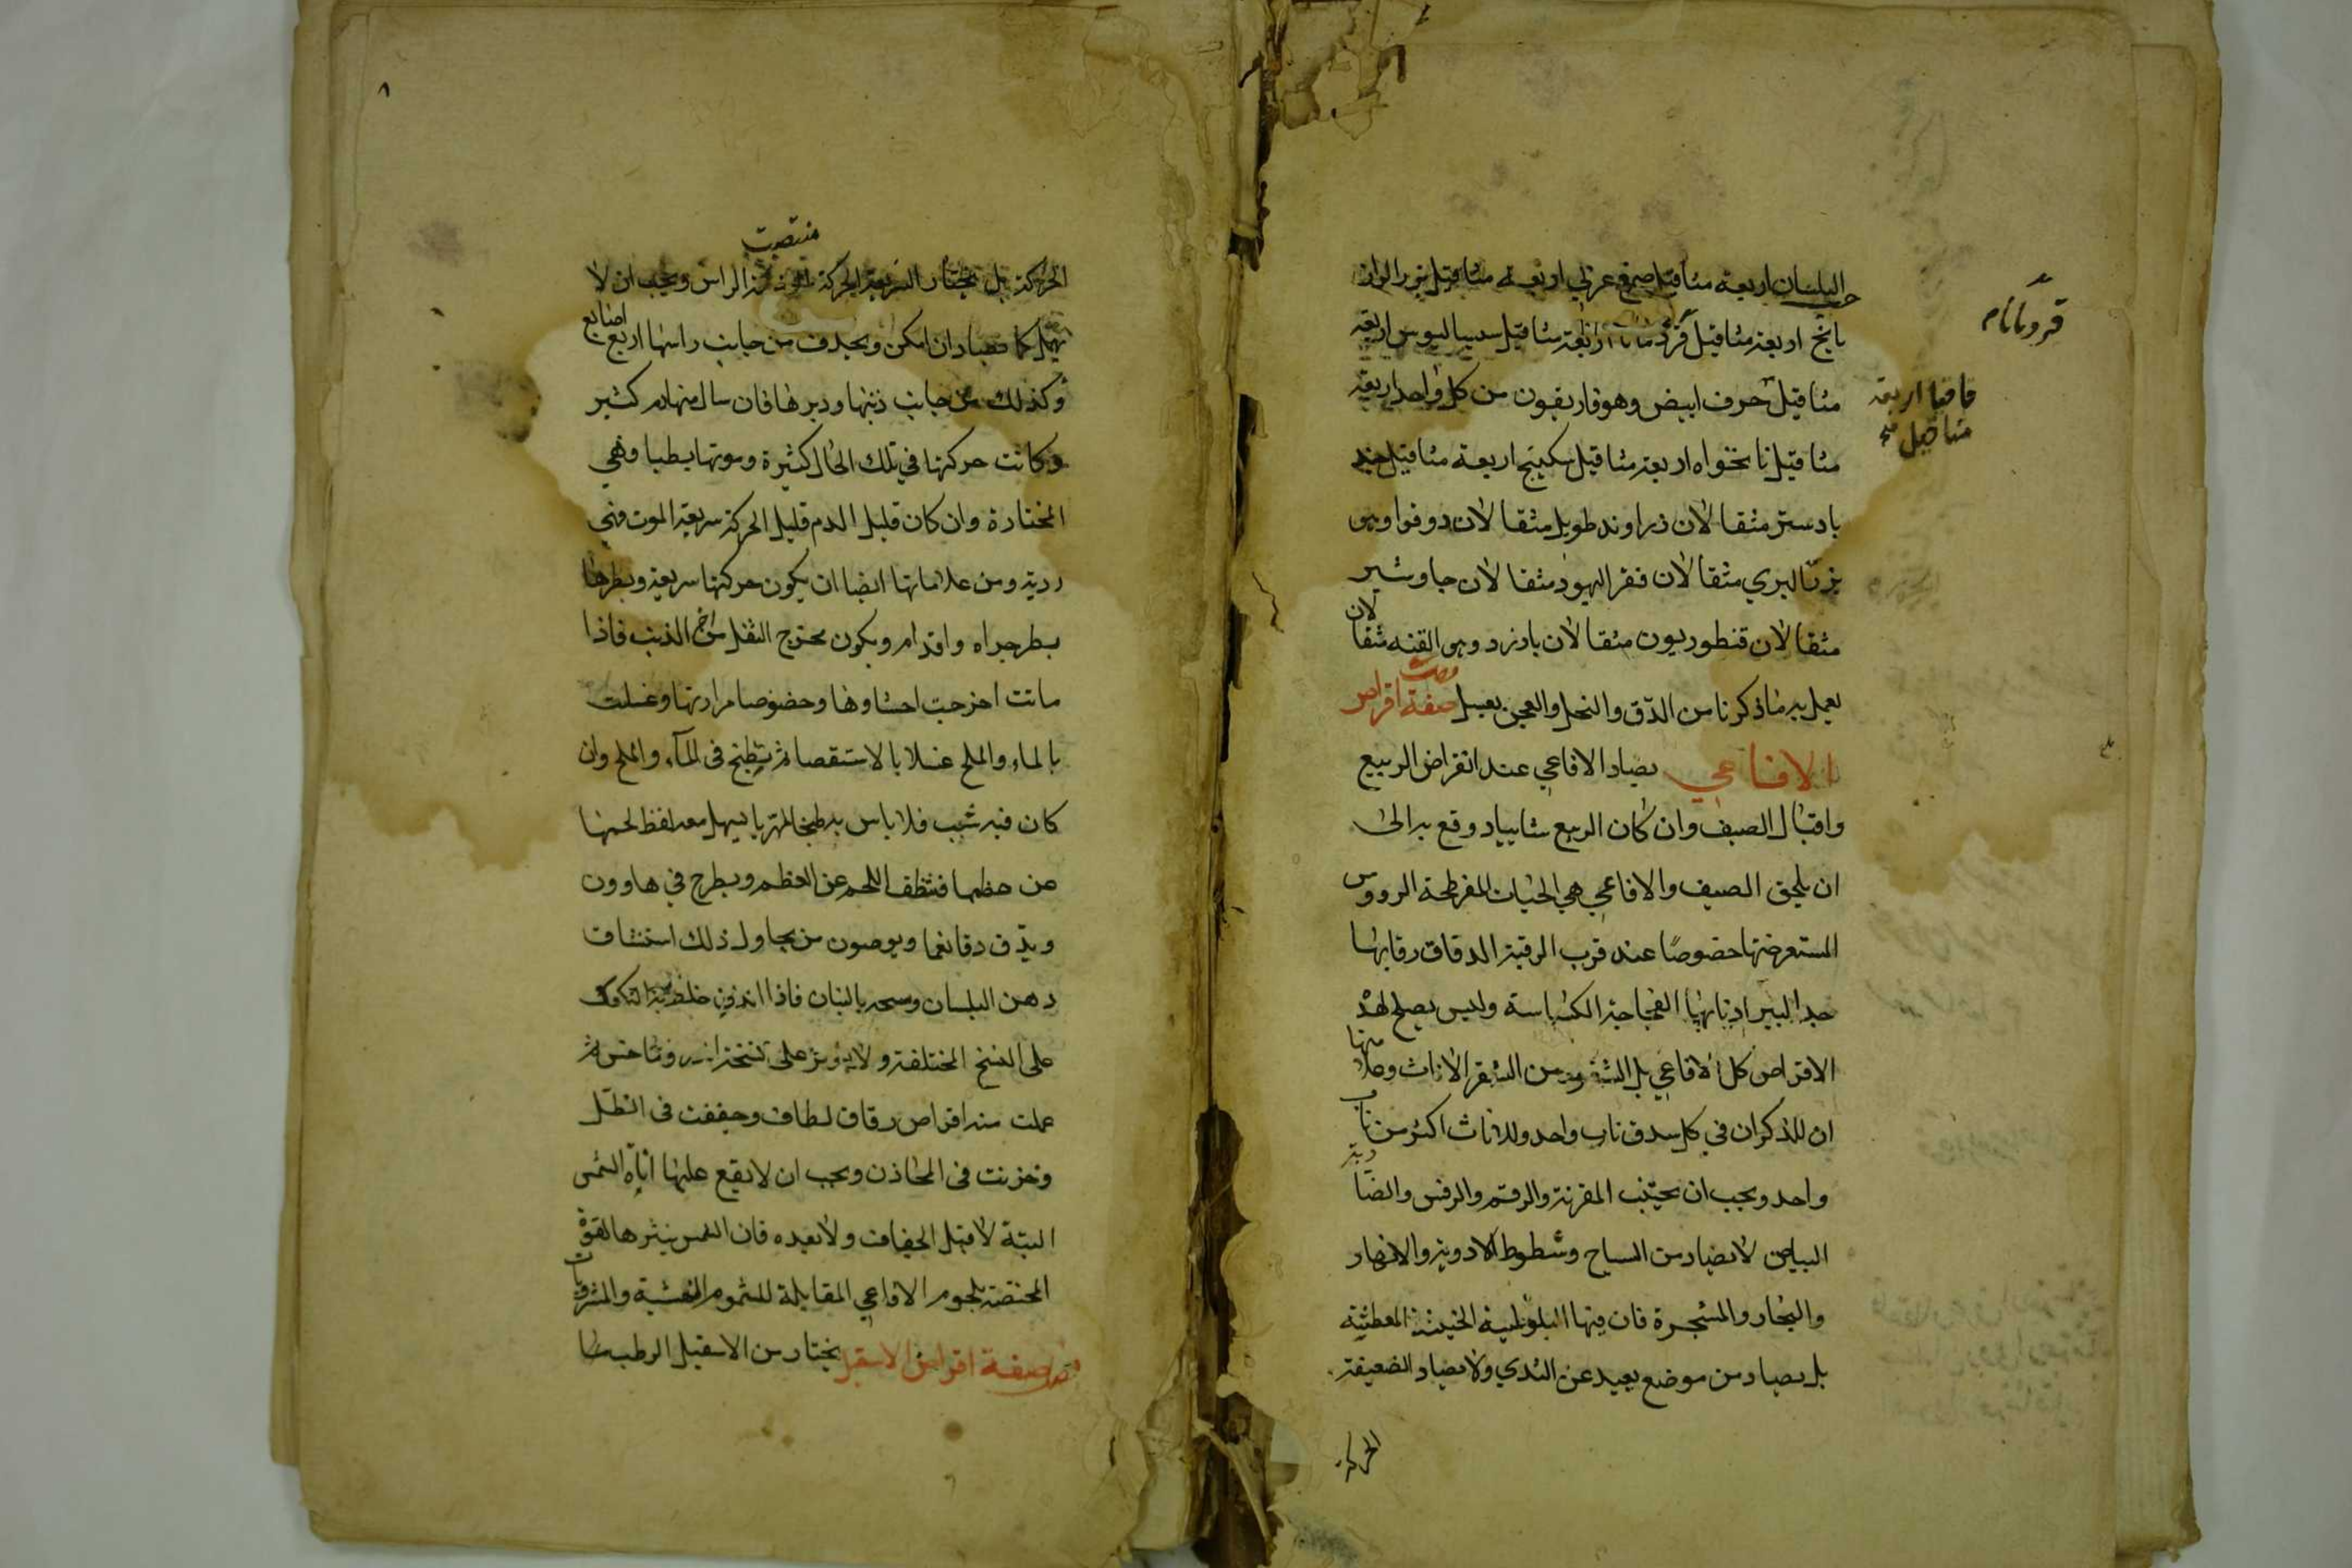 البلسان اربعة مثاقيل صمغ عربي اربعة مثاقيل بزر الراز
حب
يانج اربعة مثاقيل قردمانا اربعة مثاقيل سيساليوس اربعة
مثاقيل حرف ابيض وهوفاريقون من كل واحد اربعة
مثاقيل نانخواه اربعة مثاقيل سكبينج اربعة مثاقيل جند
بادستر مثقالان زراوند طويل مثقالان دوقوا وهو
بزر البري مثقالان فقر اليهود مثقالان جاوشير
مثقالان قنطوريون مثقالان بادزرد وهي القنه مثقا
لان
يعمل به ماذكرنا من الدق والنخل والعجن بعسل صفة اقراص
الافاعي يصاد الافاعي عند انقراض الربيع
واقبال الصيف وان كان الربيع شاتيا دوقع به الى
ان يلحق الصيف والافاعي هي الحيات المفرطحة الرووس
المستعرضتها خصوصا عند قرب الرقبة الدقاق رقابها
جدا البتير اذنابها الفحاحة الكشاسة وليس يصلح لهذ
الاقراص كل الافاعي بل الشقر ومن الشقر الاناث وعلا
منها
ان للذكران في كل شدق ناب واحد وللاناث اكثر من ناب
واحد ويجب ان يجتنب المقرنة والرقم والرقش والضا
ربة
البياض لا يصاد من السباخ وشطوط الاودية والانهار
والبحار والمشجرة فان فيها البلوطية الخبيثة المعطشة
بل يصاد من موضع بعيد عن الندي ولا يصاد الضعيفة
الحركة
قردمانام
قاقيا اربعة
مثاقيل صح
٨
الحركة بل يختار السريعة الحركة الراس ويجب ان لا
منتصبت
يمهل كما يصاد ان امكن ويحذف من جانب راسها اربع
اصابع
وكذلك من جانب ذنبها ودبرها فان سال منها دم كثير
وكانت حركتها في تلك الحال كثيرة وموتها بطيا وهي
المختارة وان كان قليل الدم قليل الحركة سريعة الموت فهي
ردية ومن علاماتها ايضا ان يكون حركتها سريعة ونظرها
نظر جراه واقدام ويكون مخرج الثفل من اخر الذنب فاذا
ماتت اخرجت احشاوها وخصوصا مرارتها وغسلت
بالماء والملح غسلا بالاستقصا ثم يطبخ في المآء والملح وان
كان فيه شبت فلا باس به طبخا مهريا يسهل معه لفظ لحمها
عن عظمها فينظف اللحم عن العظم ويطرح في هاوون
ويدق دقا نعما ويوصون من يحاول ذلك استنشاق
دهن البلسان ومسحه بالبنان فاذا اندق خلط به الكعك
على النسخ المختلفة ولا يوثر على نسخة اندروماخس ثم
عملت منه اقراص رقاق لطاف وجففت في الظل
وخزنت في المخازن ويجب ان لا يقع عليها اياة الشمس
البتة لا قبل الجفاف ولا بعده فان الشمس ينثر ها القوة
المختصة بلحوم الافاعي المقابلة للسموم النهشية والمشروبات
صفة اقراص الاسقيل يختار من الاسقيل الرطب ما